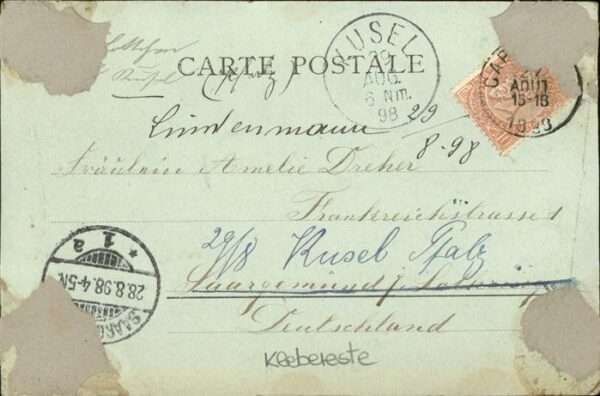 CARTE POSTALE
KUSEL
29
AUG.
6 Nm.
98
(Pfalz)
CAR
27
AOUT
15-18
1898
29
Lindenmann
8-98
Fräulein Amelie Dreher
Frankreichstrasse 1
29/8 Kusel Pfalz
Saargemünd
Deutschland
* 1 a
28.8.98.4-5N.
SAARG
Klebereste